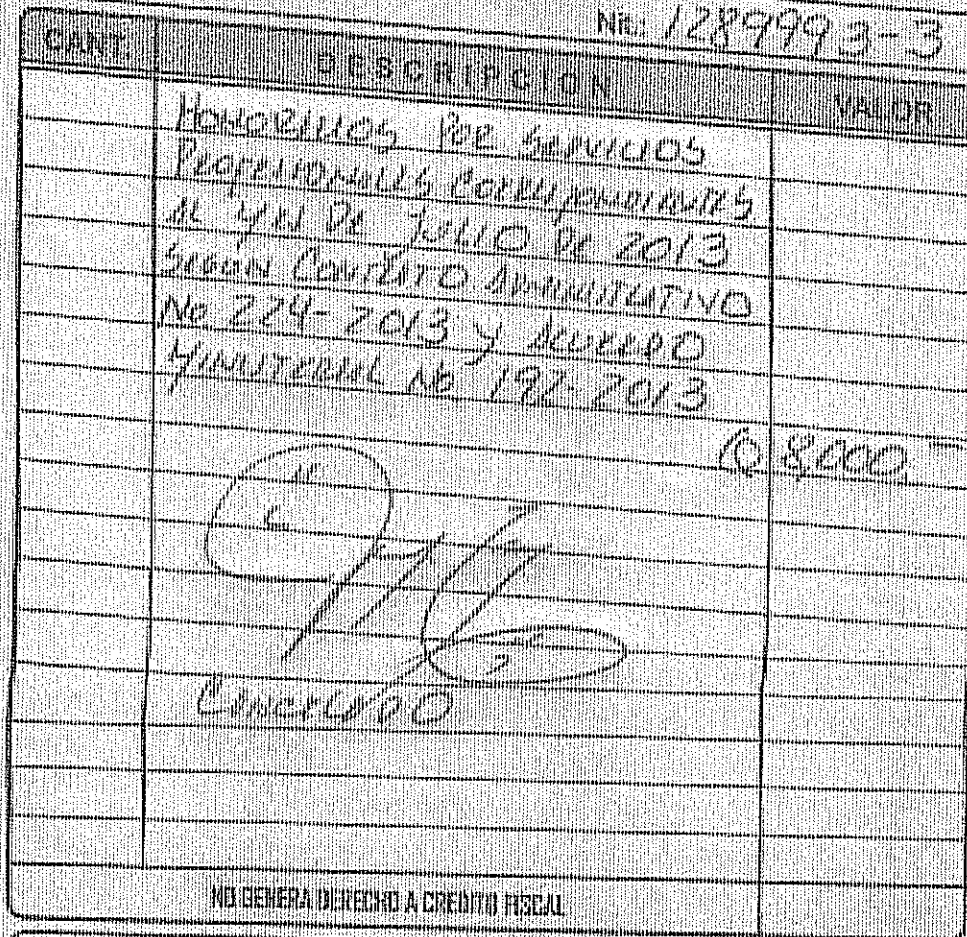 Nit: 1289993-3
CANT. DESCRIPCION VALOR
HONORARIOS POR SERVICIOS
PROFESIONALES CORRESPONDIENTES
AL MES DE JULIO DE 2013
SEGÚN CONTRATO ADMINISTRATIVO
No 224-2013 Y ACUERDO
MINISTERIAL No 192-2013
Q 8,000.
CANCELADO
NO GENERA DERECHO A CREDITO FISCAL